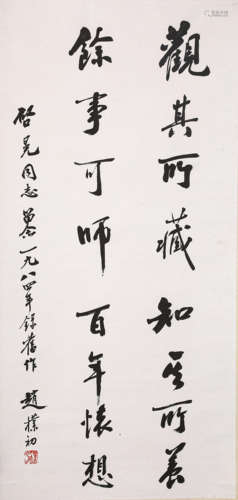 觀其所藏知其所養
餘事可師百年懷想
啓晃同志屬 一九八四年錄舊作 趙樸初